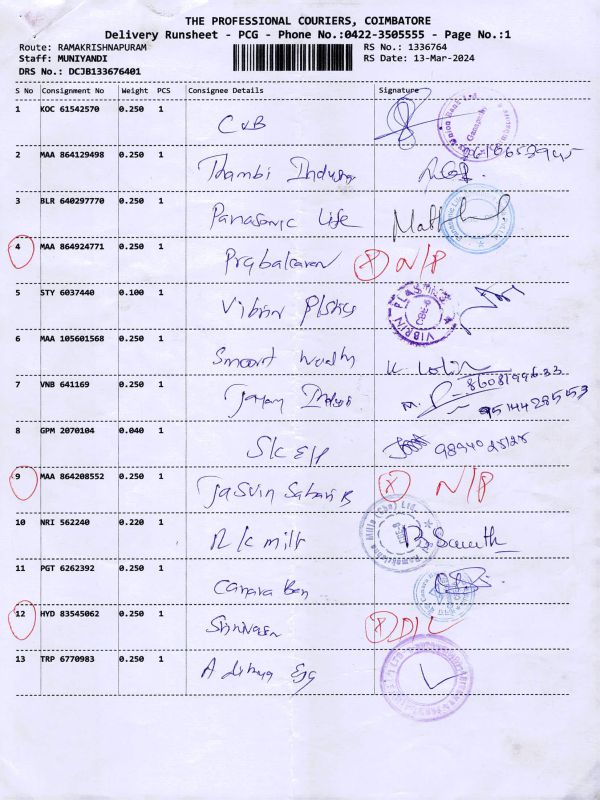 THE PROFESSIONAL COURIERS, COIMBATORE
Delivery Runsheet - PCG - Phone No.:0422-3505555 - Page No.:1
Route: RAMAKRISHNAPURAM RS No.: 1336764
Staff: MUNIYANDI RS Date: 13-Mar-2024
DRS No.: DCJB133676401
S No Consignment No Weight PCS Consignee Details Signature
1 KOC 61542570 0.250 1 CUB
2 MAA 864129498 0.250 1 Thambi
3 BLR 640297770 0.250 1 Panasonic Life
4 MAA 864924771 0.250 1 Prabakaran N/P
5 STY 6037440 0.100 1 Vibrin Plstics VIBRIN PLASTICS CBE-6
6 MAA 105601568 0.250 1 Smart
7 VNB 641169 0.250 1 8608199633
9514428553
8 GPM 2070104 0.040 1 SK 9894025125
9 MAA 864208552 0.250 1 N/P
10 NRI 562240 0.220 1 R K mills
11 PGT 6262392 0.250 1 Canara Ban
12 HYD 83545062 0.250 1 Srinivasan D/L
13 TRP 6770983 0.250 1 Adithya Egg